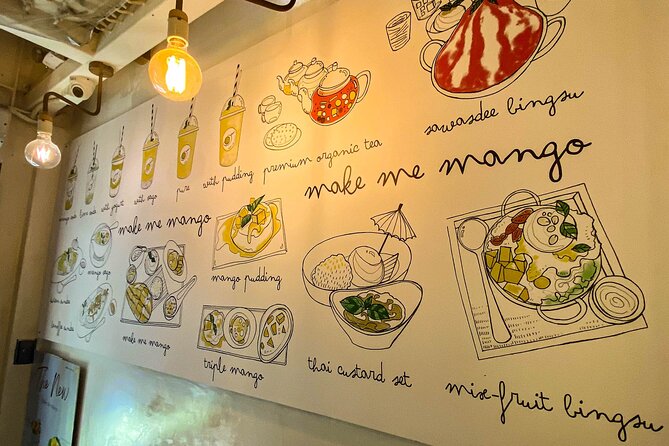 sawasdee bingsu
with yogurt
with sago
pure
with pudding
premium organic tea
make me mango
make me mango
mango sago
mango pudding
make me mango
triple mango
thai custard set
mix-fruit bingsu
The New